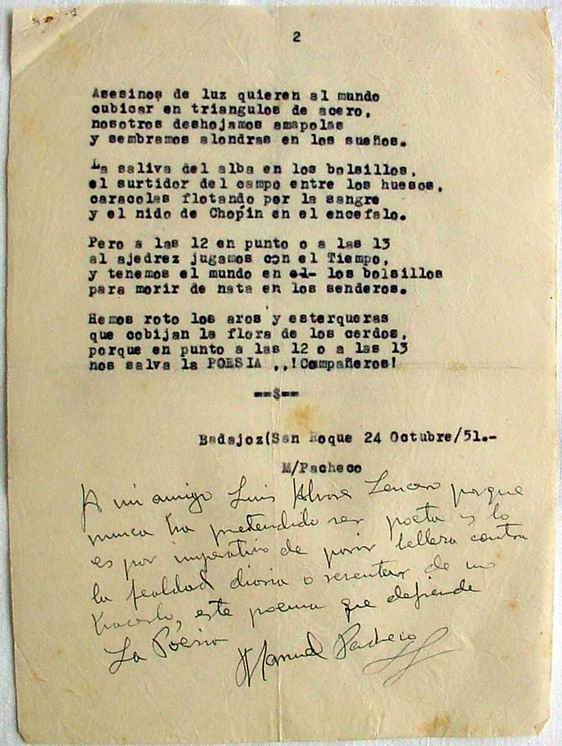 2
Asesinos de luz quieren al mundo
cubicar en triangulos de acero,
nosotros deshojamos amapolas
y sembramos alondras en los sueños.
La saliva del alba en los bolsillos,
el surtidor del campo entre los huesos,
caracolas flotando por la sangre
y el nido de Chopin en el encefalo.
Pero a las 12 en punto o a las 13
al ajedrez jugamos con el Tiempo,
y tenemos el mundo en el los bolsillos
para morir de nata en los senderos.
Hemos roto los aros y esterqueras
que cobijan la flora de los cerdos,
porque en punto a las 12 o a las 13
nos salva la POESIA ,,!Compañeros!
==$==
Badajoz(San Roque 24 Octubre/51.-
M/Pacheco
A mi amigo Luis Alvarez Lencero porque
nunca ha pretendido ser poeta y lo
es por imperativo de parir belleza contra
la fealdad diaria o reventar de no
hacerlo, este poema que defiende
La Poesia
Manuel Pacheco